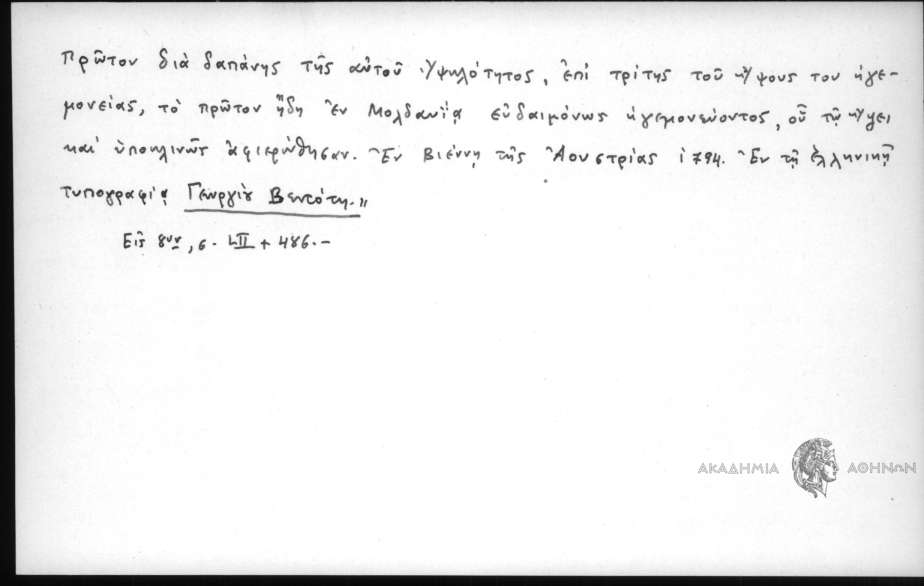 πρῶτον διὰ δαπάνης τῆς αὐτοῦ Ὑψηλότητος, ἐπὶ τρίτης τοῦ ὕψους του ἡγε-
μονείας, τὸ πρῶτον ἤδη ἐν Μολδαυΐᾳ εὐδαιμόνως ἡγεμονεύοντος, οὗ τῷ ὕψει
καὶ ὑποκλινῶς ἀφιερώθησαν. Ἐν Βιέννῃ τῆς Ἀουστρίας 1794. Ἐν τῇ ἑλληνικῇ
τυπογραφίᾳ Γεωργίου Βεντότη."
Εἰς 8ον, σ. LII + 486.-
ΑΚΑΔΗΜΙΑ ΑΘΗΝΩΝ